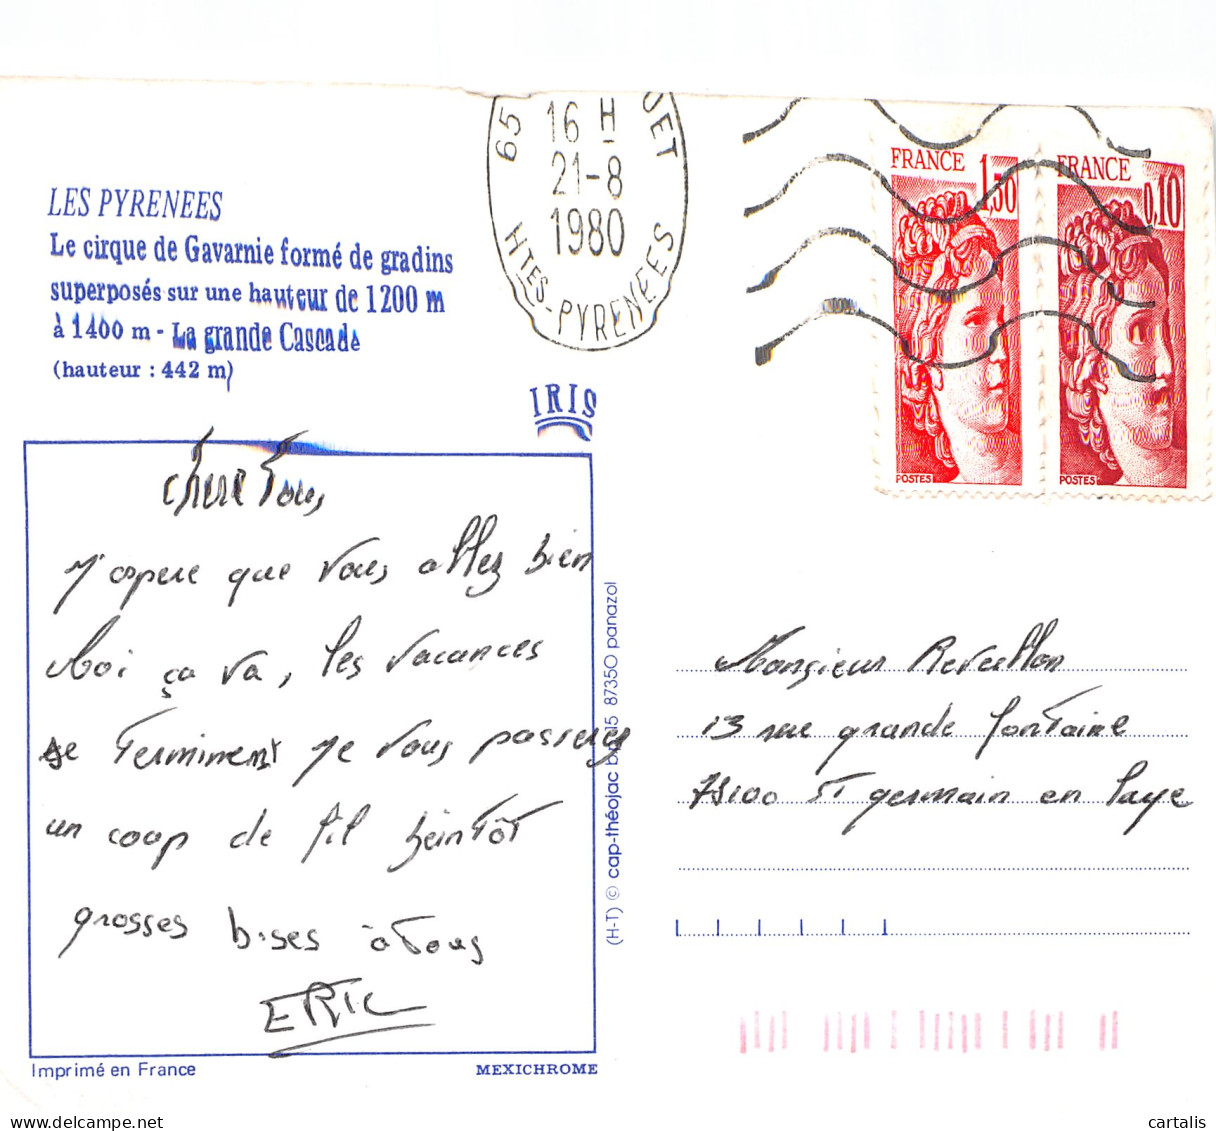 LES PYRENEES
Le cirque de Gavarnie formé de gradins
superposés sur une hauteur de 1200 m
à 1400 m - La grande Cascade
(hauteur : 442 m)
IRIS
65
16 H
21-8
1980
HTES-PYRENEES
FRANCE
1,50
POSTES
FRANCE
0,10
POSTES
chere Tous,
J'espere que vous allez bien
Moi ça va, les vacances
se terminent je vous passerez
un coup de fil beintôt
grosses bises à Tous
ERIC
Imprimé en France
MEXICHROME
(H-T) © cap-théojac 87350 panazol
Monsieur Reveillon
13 rue grande fontaine
78100 ST germain en Laye
cartalis